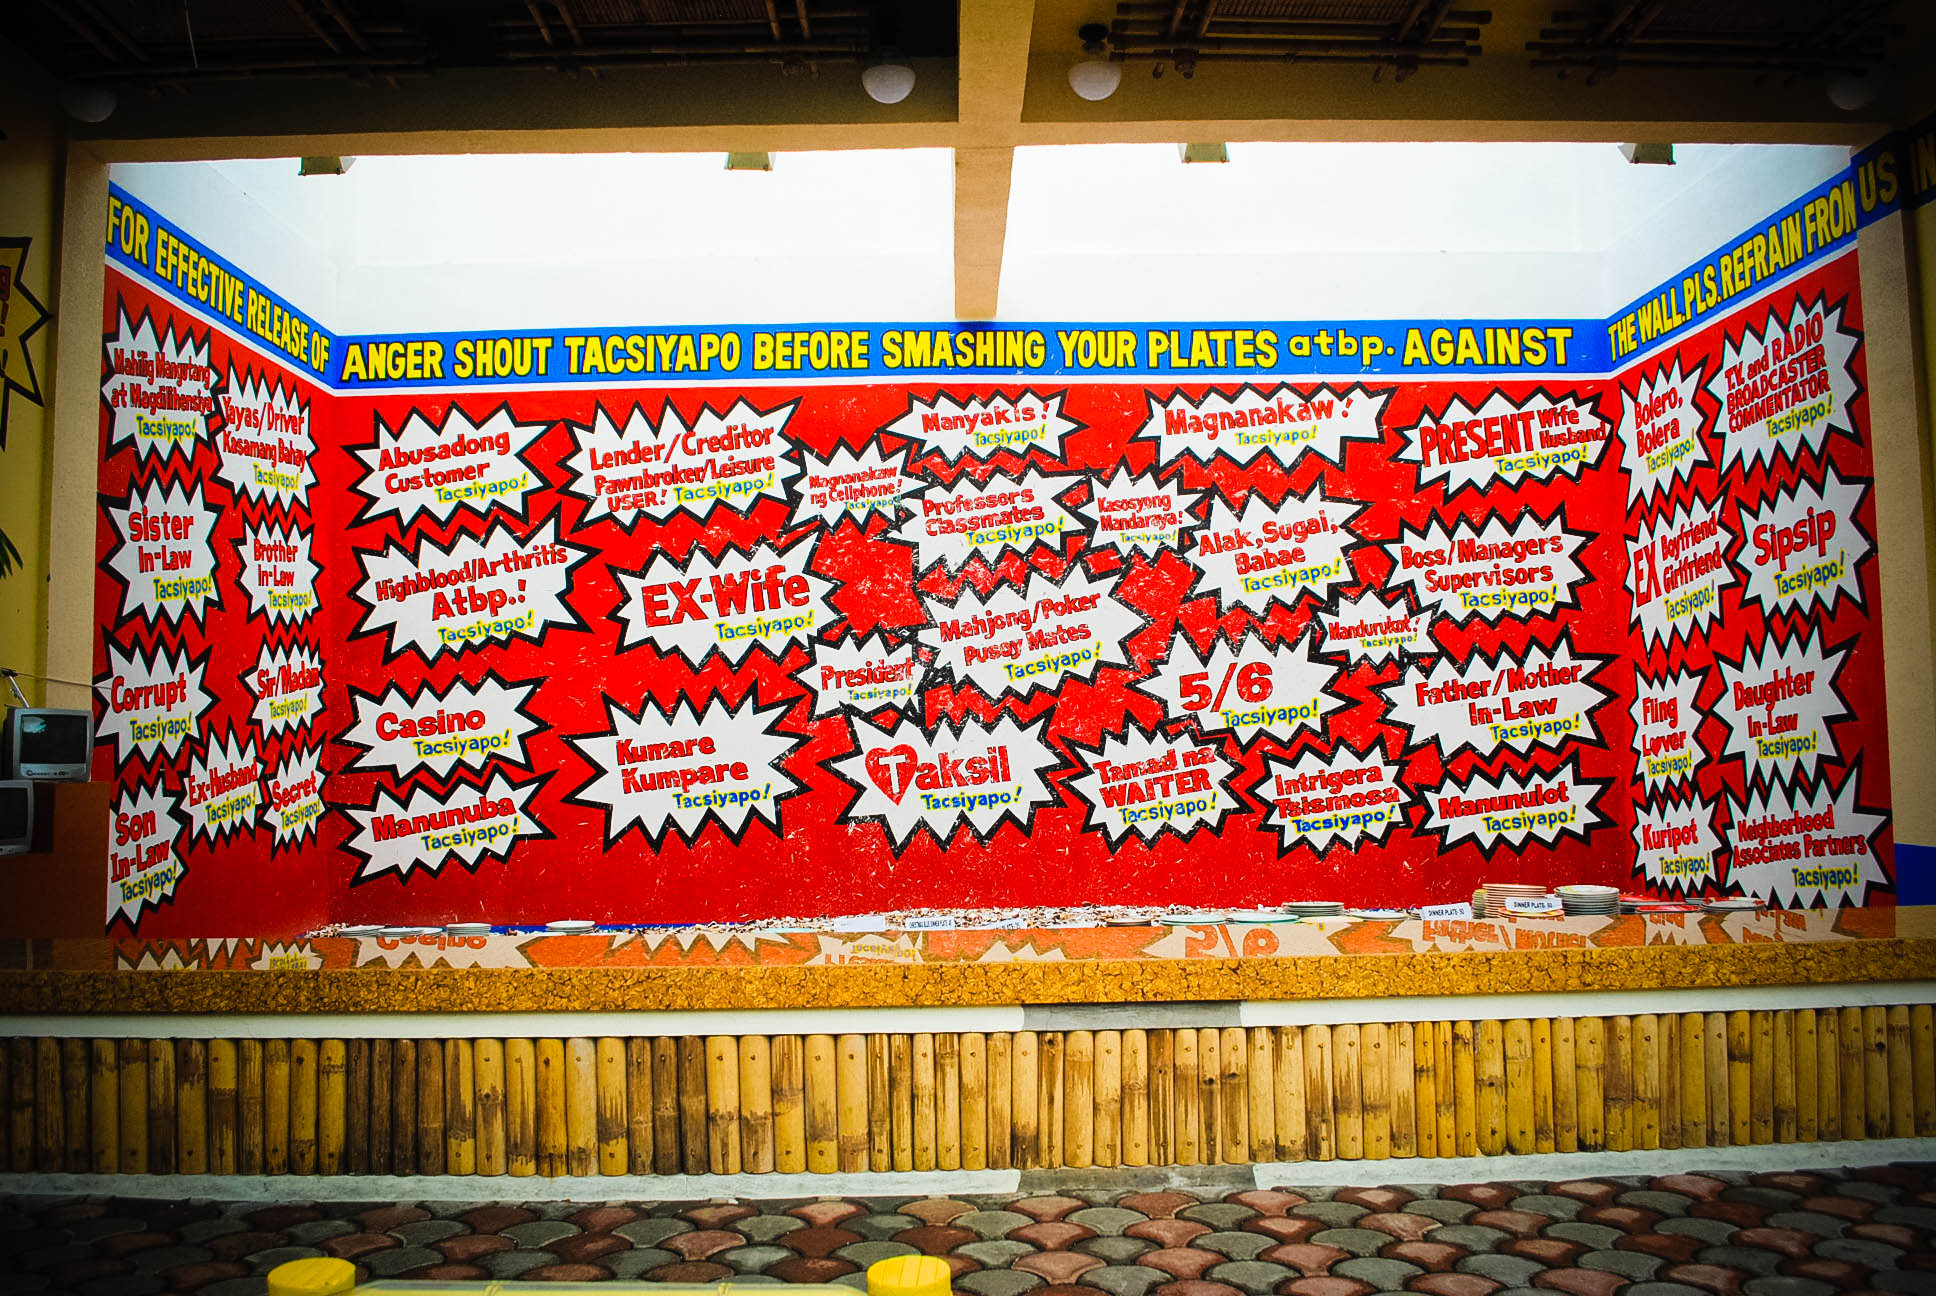 FOR EFFECTIVE RELEASE OF ANGER SHOUT TACSIYAPO BEFORE SMASHING YOUR PLATES atbp. AGAINST THE WALL.PLS.REFRAIN FROM US IN
Mahilig Mangutang
at Magdilihensiya
Tacsiyapo!
Yayas/Driver
Kasamang Bahay
Tacsiyapo!
Sister
In-Law
Tacsiyapo!
Brother
In-Law
Tacsiyapo!
Corrupt
Tacsiyapo!
Sir/Madam
Tacsiyapo!
Son
In-Law
Tacsiyapo!
Ex-Husband
Tacsiyapo!
Secret
Tacsiyapo!
Abusadong
Customer
Tacsiyapo!
Lender/Creditor
Pawnbroker/Leisure
USER! Tacsiyapo!
Magnanakaw
ng Cellphone!
Tacsiyapo!
Manyakis!
Tacsiyapo!
Magnanakaw!
Tacsiyapo!
PRESENT Wife
Husband
Tacsiyapo!
Highblood/Arthritis
Atbp.!
Tacsiyapo!
EX-Wife
Tacsiyapo!
Professors
Classmates
Tacsiyapo!
Kasosyong
Mandaraya!
Tacsiyapo!
Alak, Sugal,
Babae
Tacsiyapo!
Boss/Managers
Supervisors
Tacsiyapo!
Mahjong/Poker
Pusoy Mates
Tacsiyapo!
Mandurukot!
Tacsiyapo!
President
Tacsiyapo!
5/6
Tacsiyapo!
Father/Mother
In-Law
Tacsiyapo!
Casino
Tacsiyapo!
Kumare
Kumpare
Tacsiyapo!
Taksil
Tacsiyapo!
Tamad na
WAITER
Tacsiyapo!
Intrigera
Tsismosa
Tacsiyapo!
Manunulot
Tacsiyapo!
Manunuba
Tacsiyapo!
Bolero,
Bolera
Tacsiyapo!
T.V. and RADIO
BROADCASTER
COMMENTATOR
Tacsiyapo!
EX Boyfriend
Girlfriend
Tacsiyapo!
Sipsip
Tacsiyapo!
Fling
Lover
Tacsiyapo!
Daughter
In-Law
Tacsiyapo!
Kuripot
Tacsiyapo!
Neighborhood
Associates Partners
Tacsiyapo!
DINNER PLATE
DINNER PLATE